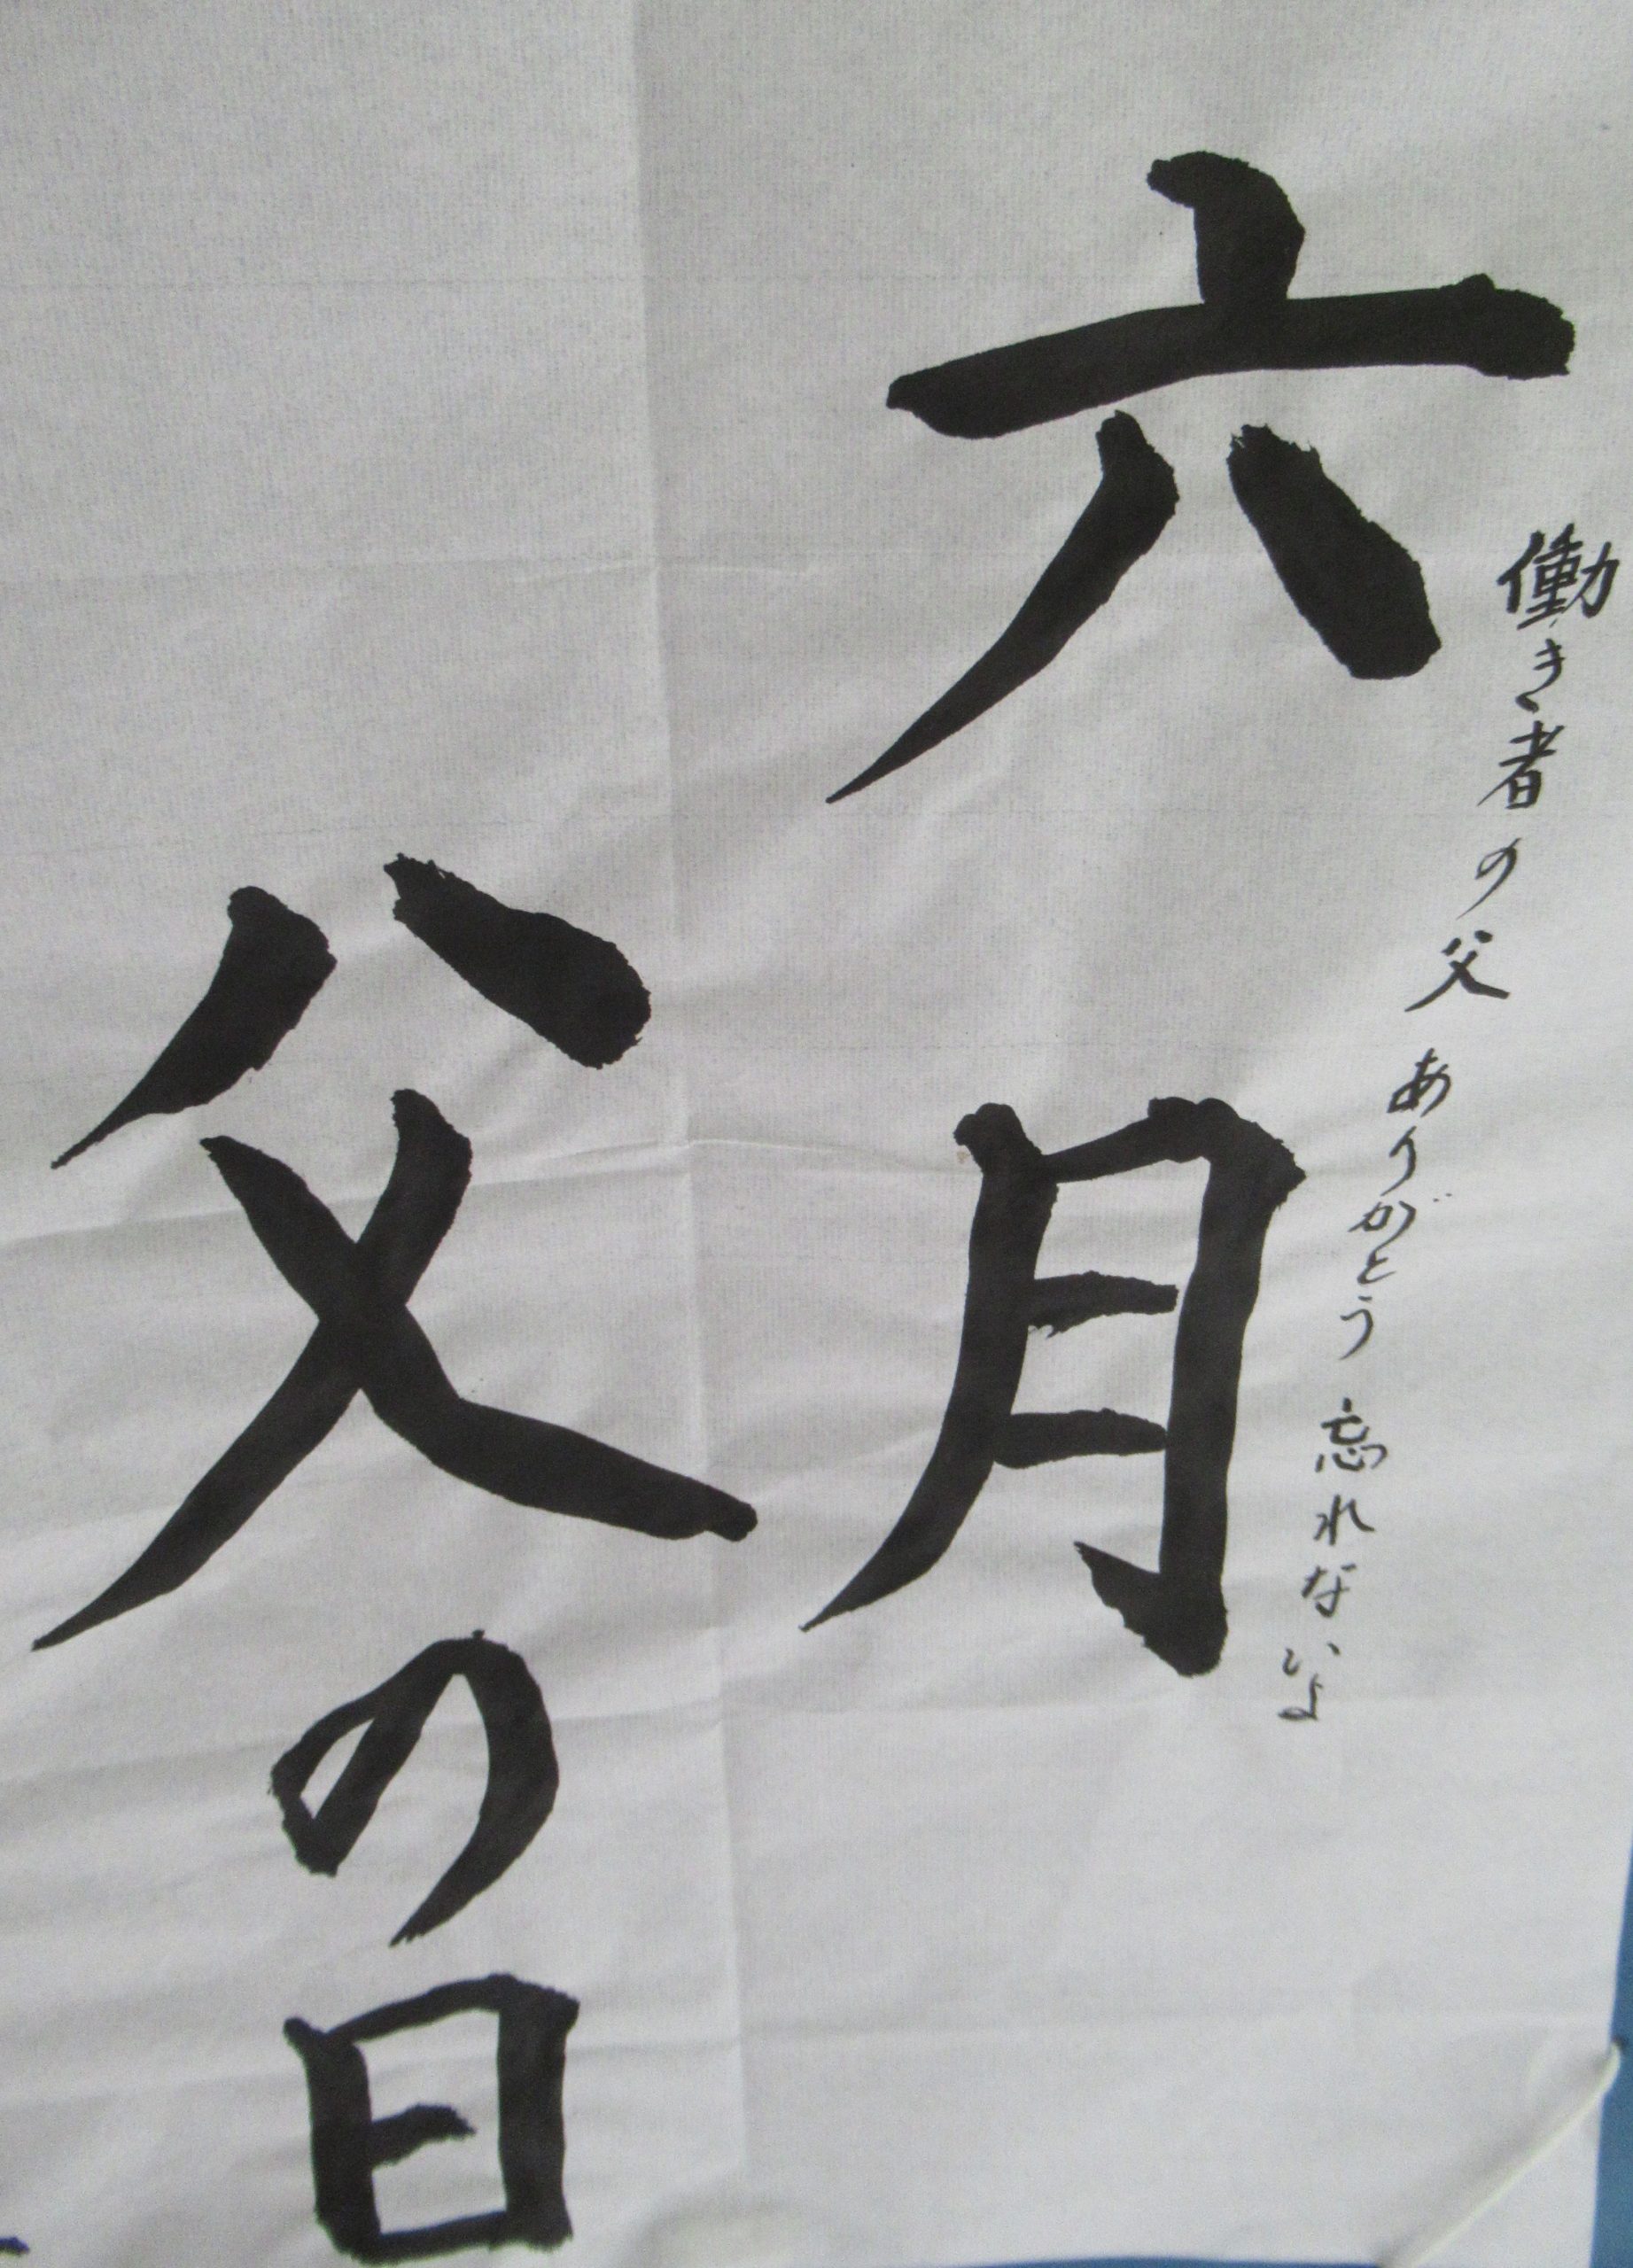 働き者の父 ありがとう 忘れないよ
六月
父の日